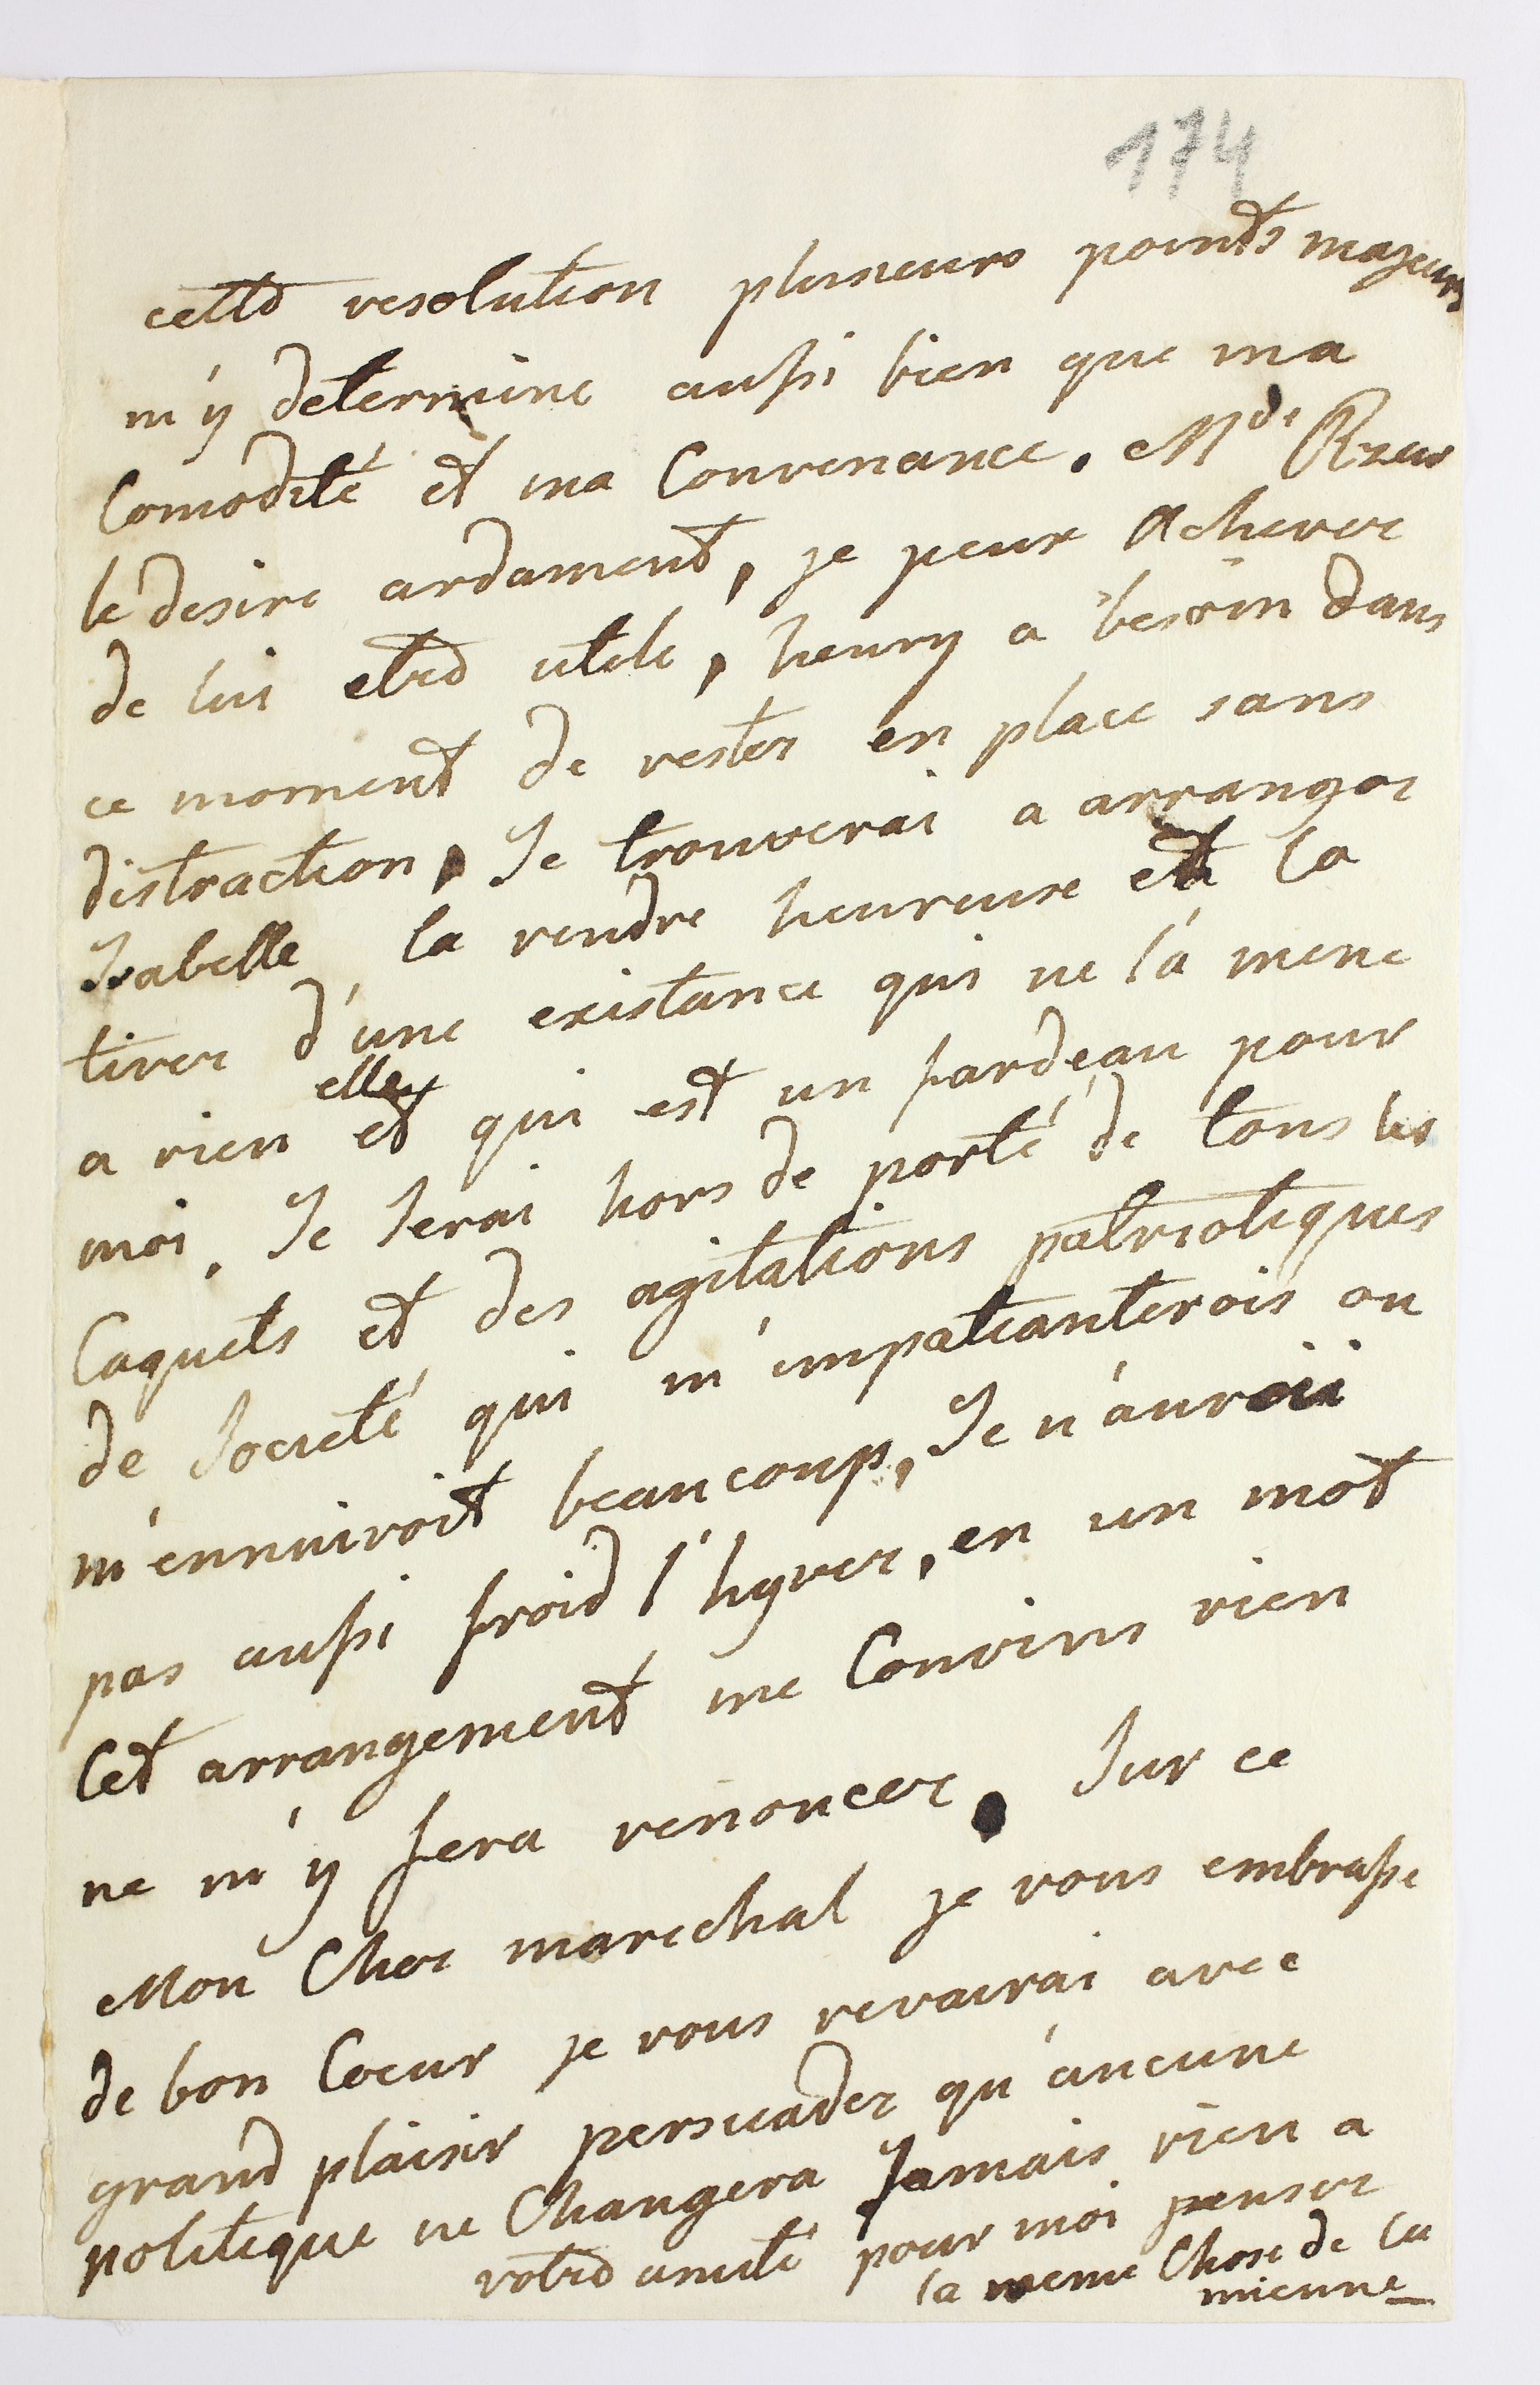 174
cette resolution plusieurs points majeurs
m'y determine aussi bien que ma
Comodité et ma Convenance. Mde Rzew
le desire ardament, je peux achever
de lui etre utile, henry a besoin dans
ce moment de rester en place sans
distraction, Je trouverai a arranger
Isabelle la rendre heureuse et la
tirer d'une existance qui ne l'a mene
elle
a rien et qui est un fardeau pour
moi, Je serai hors de porté de tous les
Caquets et des agitations patriotiques
de societé qui m'impatianterois ou
m'ennuiroit beaucoup, Je n'aurois
pas aussi froid l'hyver, en un mot
Cet arrangement me Convins rien
ne m'y fera renoncer. Sur ce
Mon Cher marechal je vous embrasse
de bon Coeur je vous revairai avec
grand plaisir persuader qu'aucune
politique ne Changera Jamais rien a
votre amitié pour moi penser
la meme Chose de la
mienne